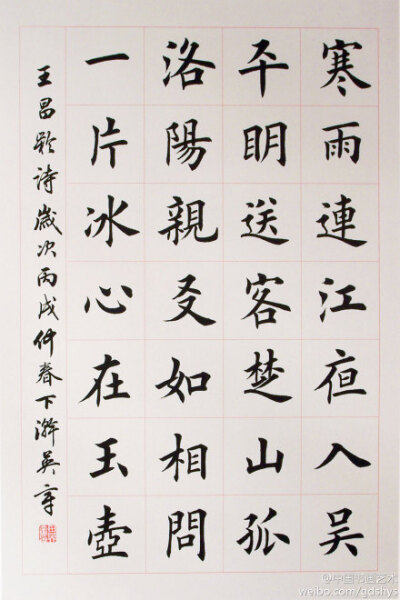 寒雨連江夜入吳
平明送客楚山孤
洛陽親友如相問
一片冰心在玉壺
王昌齡詩歲次丙戌仲春下澣吳
weibo.com/gdshys